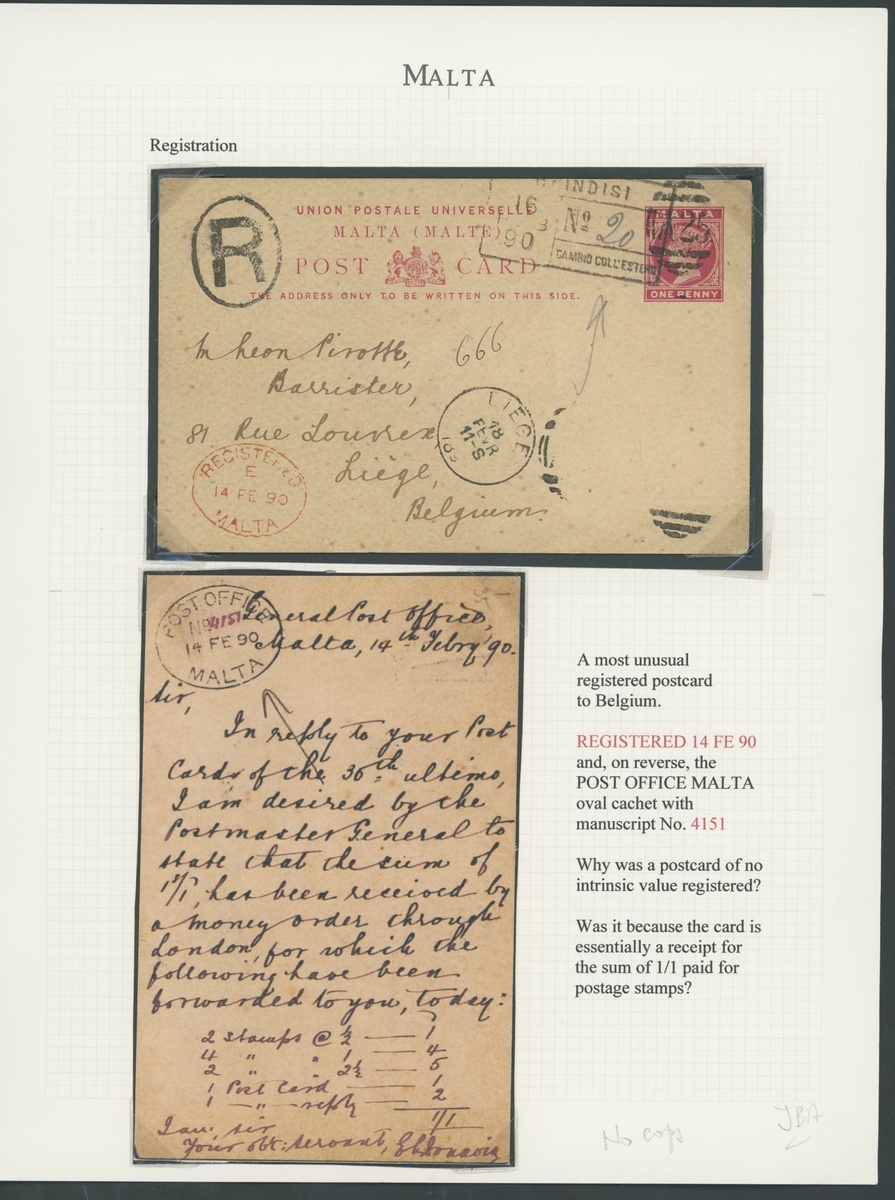 MALTA
Registration
R
UNION POSTALE UNIVERSELLE
MALTA (MALTE)
POST CARD
THE ADDRESS ONLY TO BE WRITTEN ON THIS SIDE.
BRINDISI
16
3
90
No 20
CAMBIO COLL'ESTERO
MALTA
A25
ONE PENNY
M Leon Pirotte,
666
Barrister,
81 Rue Louvrex
Liège,
Belgium.
LIÉGE
18
FEVR
11-S
REGISTERED
E
14 FE 90
MALTA
POST OFFICE
No 4151
14 FE 90
MALTA
General Post Office,
Malta, 14th Febry 90.
Sir,
In reply to your Post
Cards of the 30th ultimo,
I am desired by the
Postmaster General to
state that the sum of
1s/1, has been received by
a money order through
London, for which the
following have been
forwarded to you, today:
2 Stamps @ ½ — 1
4 " " 1 — 4
2 " " 2½ — 5
1 Post Card — 1
1 — " — reply — 2
1/1
I am, sir
Your obt: servant,
A most unusual
registered postcard
to Belgium.
REGISTERED 14 FE 90
and, on reverse, the
POST OFFICE MALTA
oval cachet with
manuscript No. 4151
Why was a postcard of no
intrinsic value registered?
Was it because the card is
essentially a receipt for
the sum of 1/1 paid for
postage stamps?
No copy
JBA